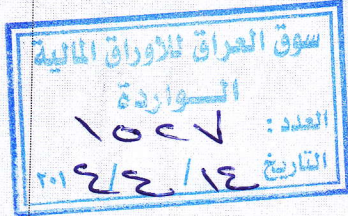 سوق العراق للاوراق المالية
الـواردة
العدد: ١٥٢٧
التاريخ ١٤/٤/٢٠١٤